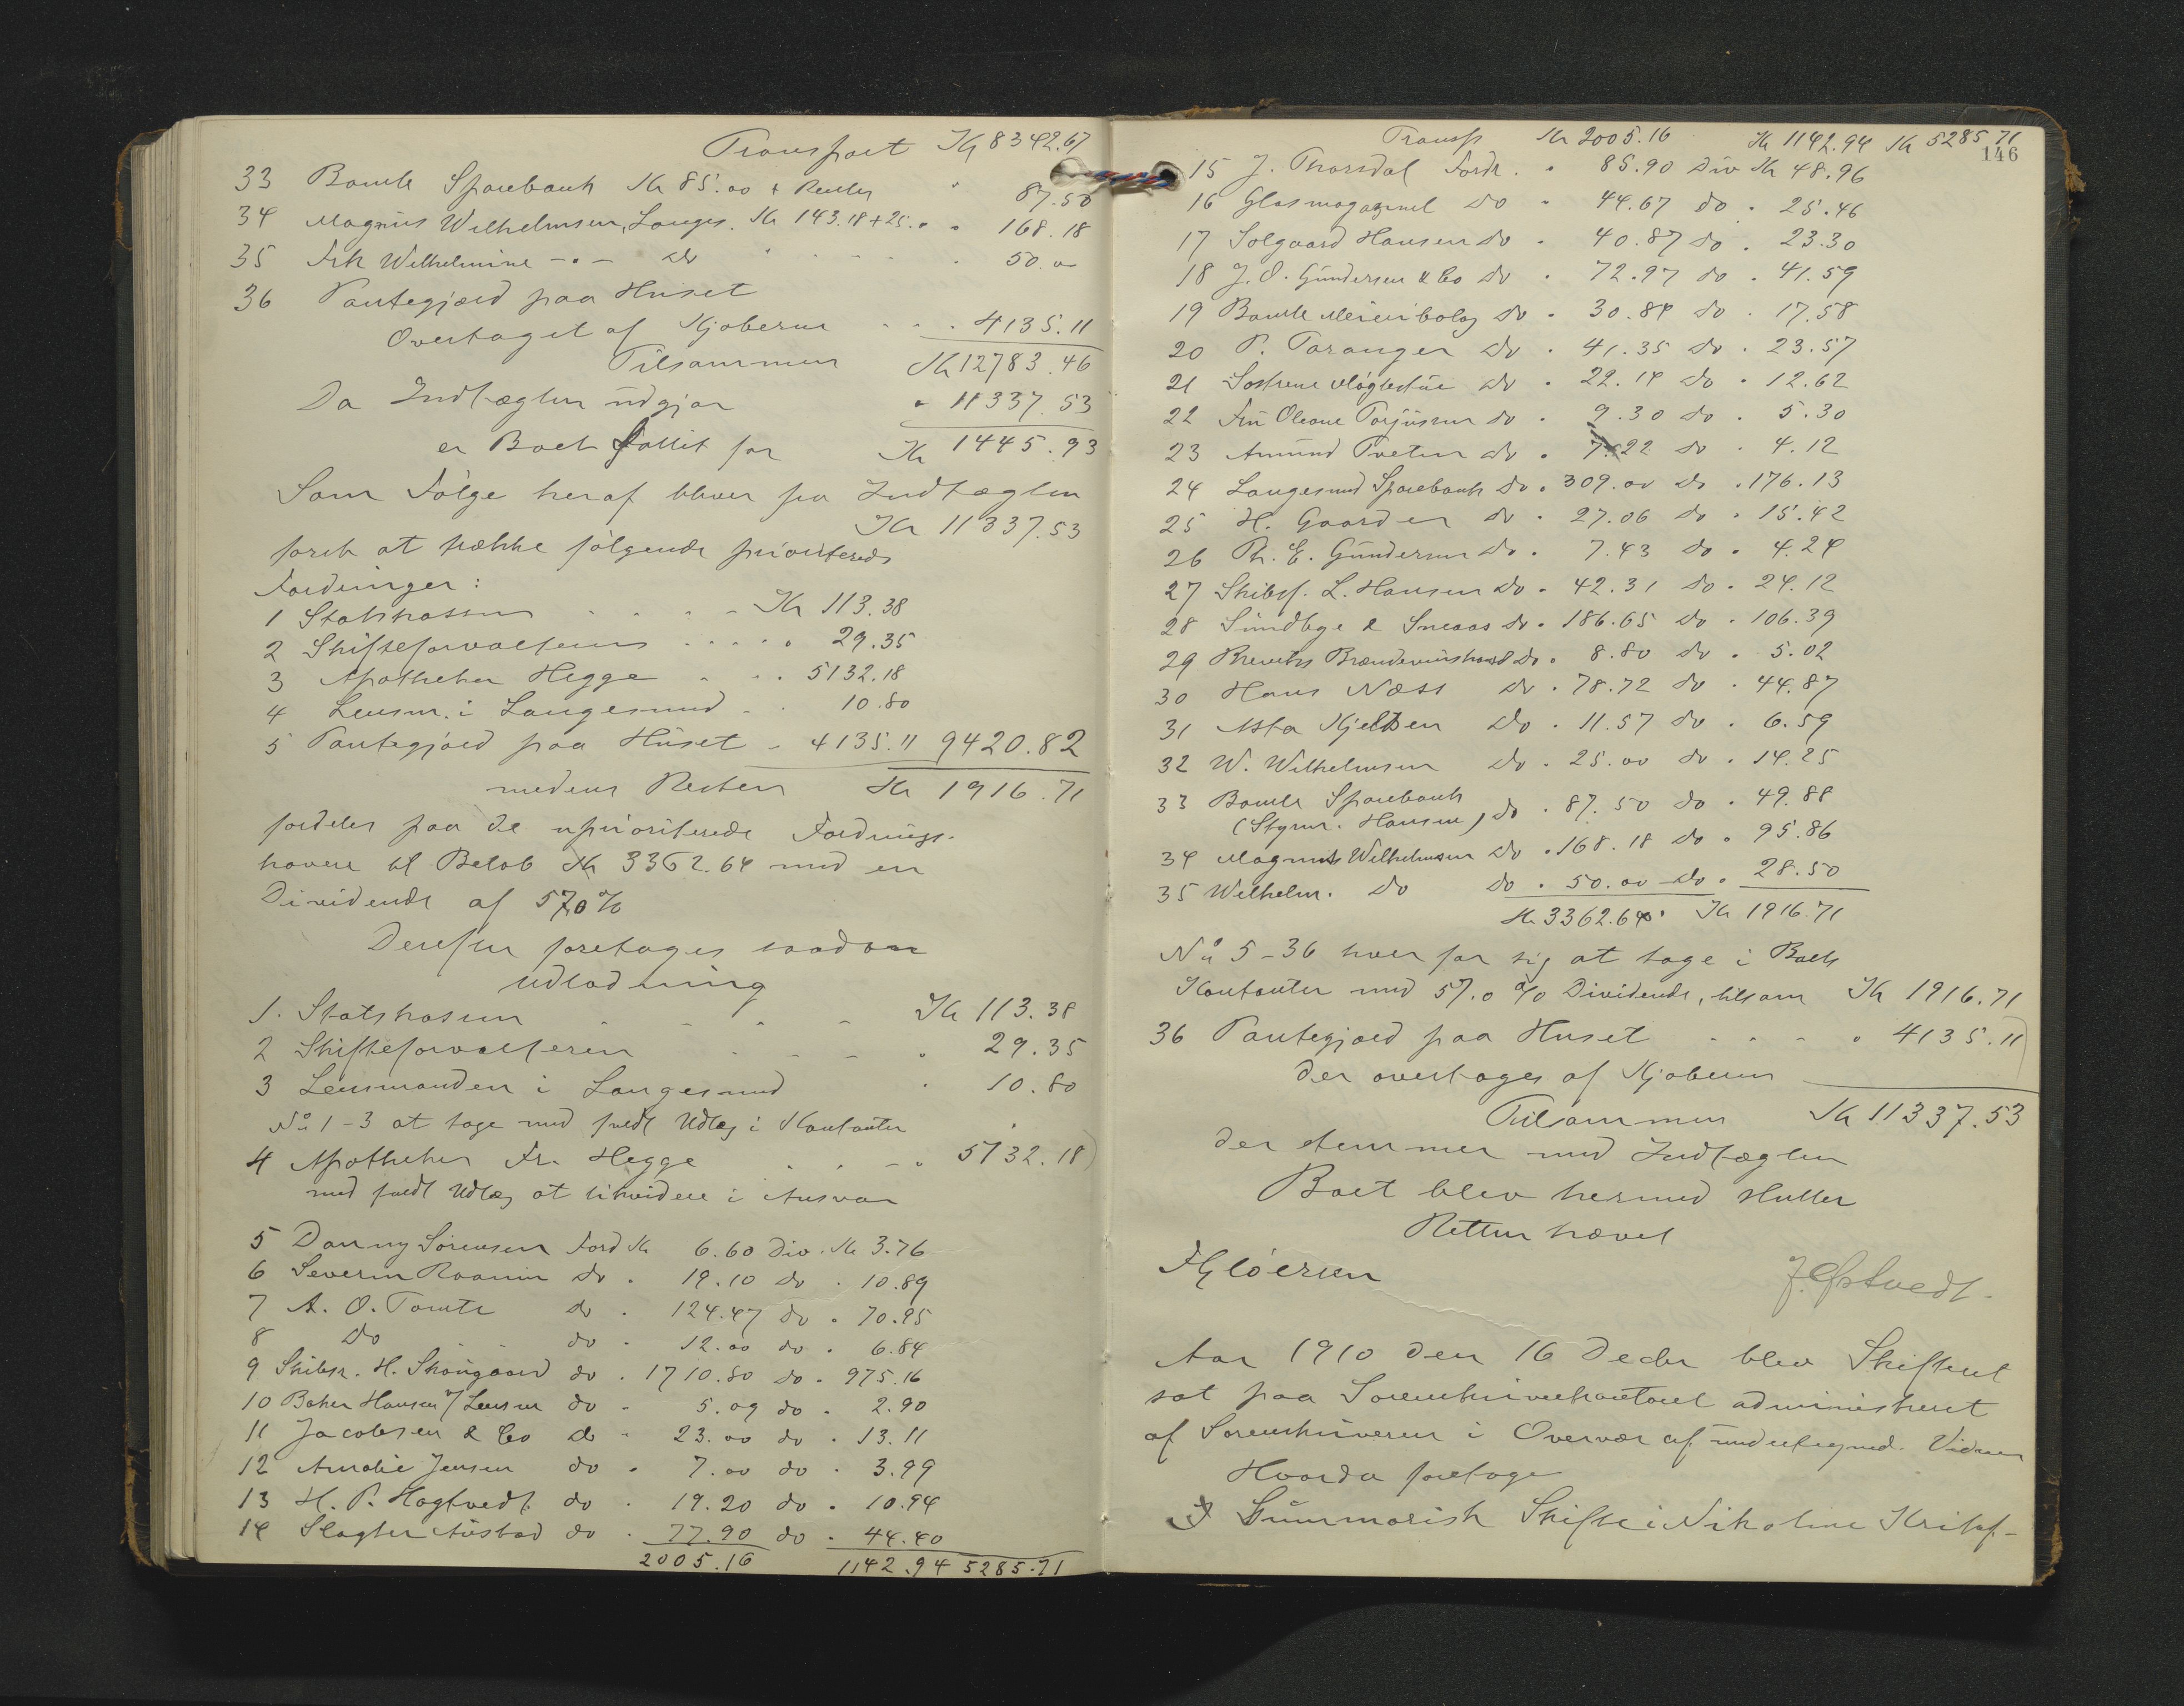 Transport Kr 8342.67
33 Bamle Sparebank Kr 85.00 + Renter " 87.50
34 Magnus Wilhelmsen, Langes. Kr 143.18 + 25. " " 168.18
35 Frk Wilhelmine -"- do " 50.00
36 Pantegjæld paa Huset
Overtaget af Kjøberne " 4135.11
Tilsammen Kr 12783.46
Da Indtægten udgjør " 11337.53
er Boet fallit for Kr 1445.93
Som Følge heraf bliver fra Indtægten
Kr 11337.53
først at trække følgende prioriterede
Fordringer:
1 Statskassen Kr 113.38
2 Skifteforvalteren " 29.35
3 Apotheker Hegge " 5132.18
4 Lensm. i Langesund " 10.80
5 Pantegjæld paa Huset " 4135.11 9420.82
medens Resten Kr 1916.71
fordeles paa de uprioriterede Fordrings-
havere til Beløb Kr 3362.64 med en
Dividende af 57,0 %
Derefter foretages saadan
Udlodning
1. Statskassen Kr 113.38
2 Skifteforvalteren " 29.35
3 Lensmanden i Langesund " 10.80
No 1-3 at tage med fuldt Udlæg i Kontanter
4 Apotheker Fr. Hegge " 5132.18)
med fuldt Udlæg at likvidere i Ansvar
5 Danny Sørensen Ford Kr 6.60 Div. Kr 3.76
6 Severin Raanin do " 19.10 do " 10.89
7 A. O. Tomte do " 124.47 do " 70.95
8 do do " 12.00 do " 6.84
9 Skibsr. H. Skougaard do " 1710.80 do " 975.16
10 Baker Hansen / Lensm do " 5.09 do " 2.90
11 Jacobsen & Co do " 23.00 do " 13.11
12 Amalie Jensen do " 7.00 do " 3.99
13 H. P. Hagtvedt do " 19.20 do " 10.94
14 Slagter Austad do " 77.90 do " 44.40
2005.16 1142.94 5285.71
Transp Kr 2005.16 Kr 1142.94 Kr 5285.71
146
15 J. Thorsdal Fordr. " 85.90 Div Kr 48.96
16 Glasmagazinet do " 44.67 do " 25.46
17 Solgaard Hansen do " 40.87 do " 23.30
18 J. O. Gundersen & Co do " 72.97 do " 41.59
19 Bamle Meieribolag do " 30.84 do " 17.58
20 P. Taranger do " 41.35 do " 23.57
21 Søstrene Møglestue do " 22.14 do " 12.62
22 Fru Oleane Torjussen do " 9.30 do " 5.30
23 Amund Tveten do " 7.22 do " 4.12
24 Langesund Sparebank do " 309.00 do " 176.13
25 H. Gaarder do " 27.06 do " 15.42
26 Th. E. Gundersen do " 7.43 do " 4.24
27 Skibsf. L. Hansen do " 42.31 do " 24.12
28 Sundbye & Sneaas do " 186.65 do " 106.39
29 Breviks Brændevinshand do " 8.80 do " 5.02
30 Hans Næss do " 78.72 do " 44.87
31 Asta Kjeldsen do " 11.57 do " 6.59
32 W. Wilhelmsen do " 25.00 do " 14.25
33 Bamle Sparebank
(Styrm. Hansen) do " 87.50 do " 49.88
34 Magnus Wilhelmsen do " 168.18 do " 95.86
35 Wilhelm. do do " 50.00 do " 28.50
Kr 3362.64 Kr 1916.71
No 5-36 hver for sig at tage i Boets
Kontanter med 57.0 % Dividende, tilsam Kr 1916.71
36 Pantegjæld paa Huset " 4135.11)
der overtages af Kjøberen
Tilsammen Kr 11337.53
der stemmer med Indtægten
Boet blev hermed sluttet
Retten hævet
FGløersen
J. Østvedt.
Aar 1910 den 16 Decbr blev Skifteret
sat paa Sorenskriverkontoret administreret
af Sorenskriveren i Overvær af undertegned. Vidner
Hvorda foretoges
I Summarisk Skifte i Nikoline Kristof-